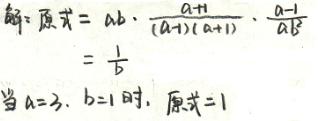 解: 原式 = ab · \frac{a+1}{(a-1)(a+1)} · \frac{a-1}{ab²}
= \frac{1}{b}
当 a=3. b=1 时, 原式=1